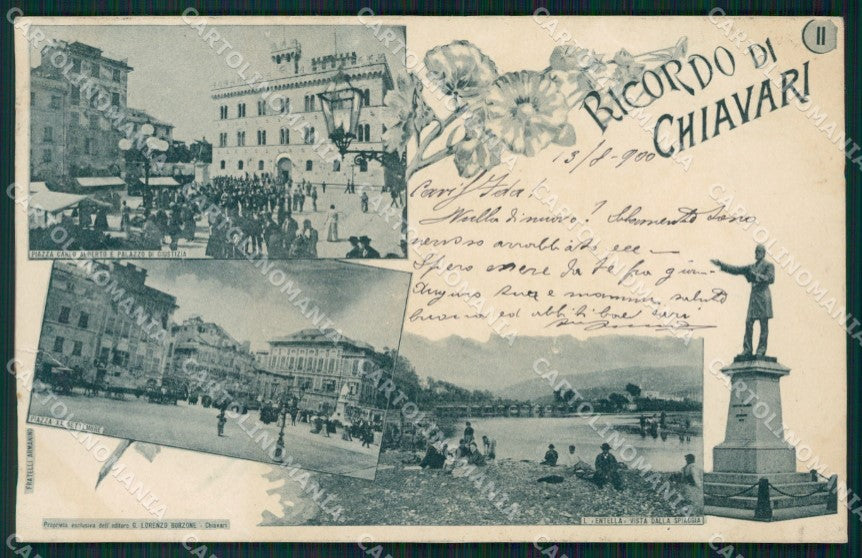 II
RICORDO DI
CHIAVARI
13/8-900
Cariss Ida!
Nulla di nuovo! Solamente sono
nervoso arrabbiato ecc-
Spero avere da te fra gior-
Auguro tua e mamma saluto
ed
PIAZZA CARLO ALBERTO E PALAZZO DI GIUSTIZIA
PIAZZA XX SETTEMBRE
L'«ENTELLA» VISTA DALLA SPIAGGIA
FRATELLI ARMANINO
Proprietà esclusiva dell'editore G. LORENZO BORZONE - Chiavari
CARTOLINOMANIA